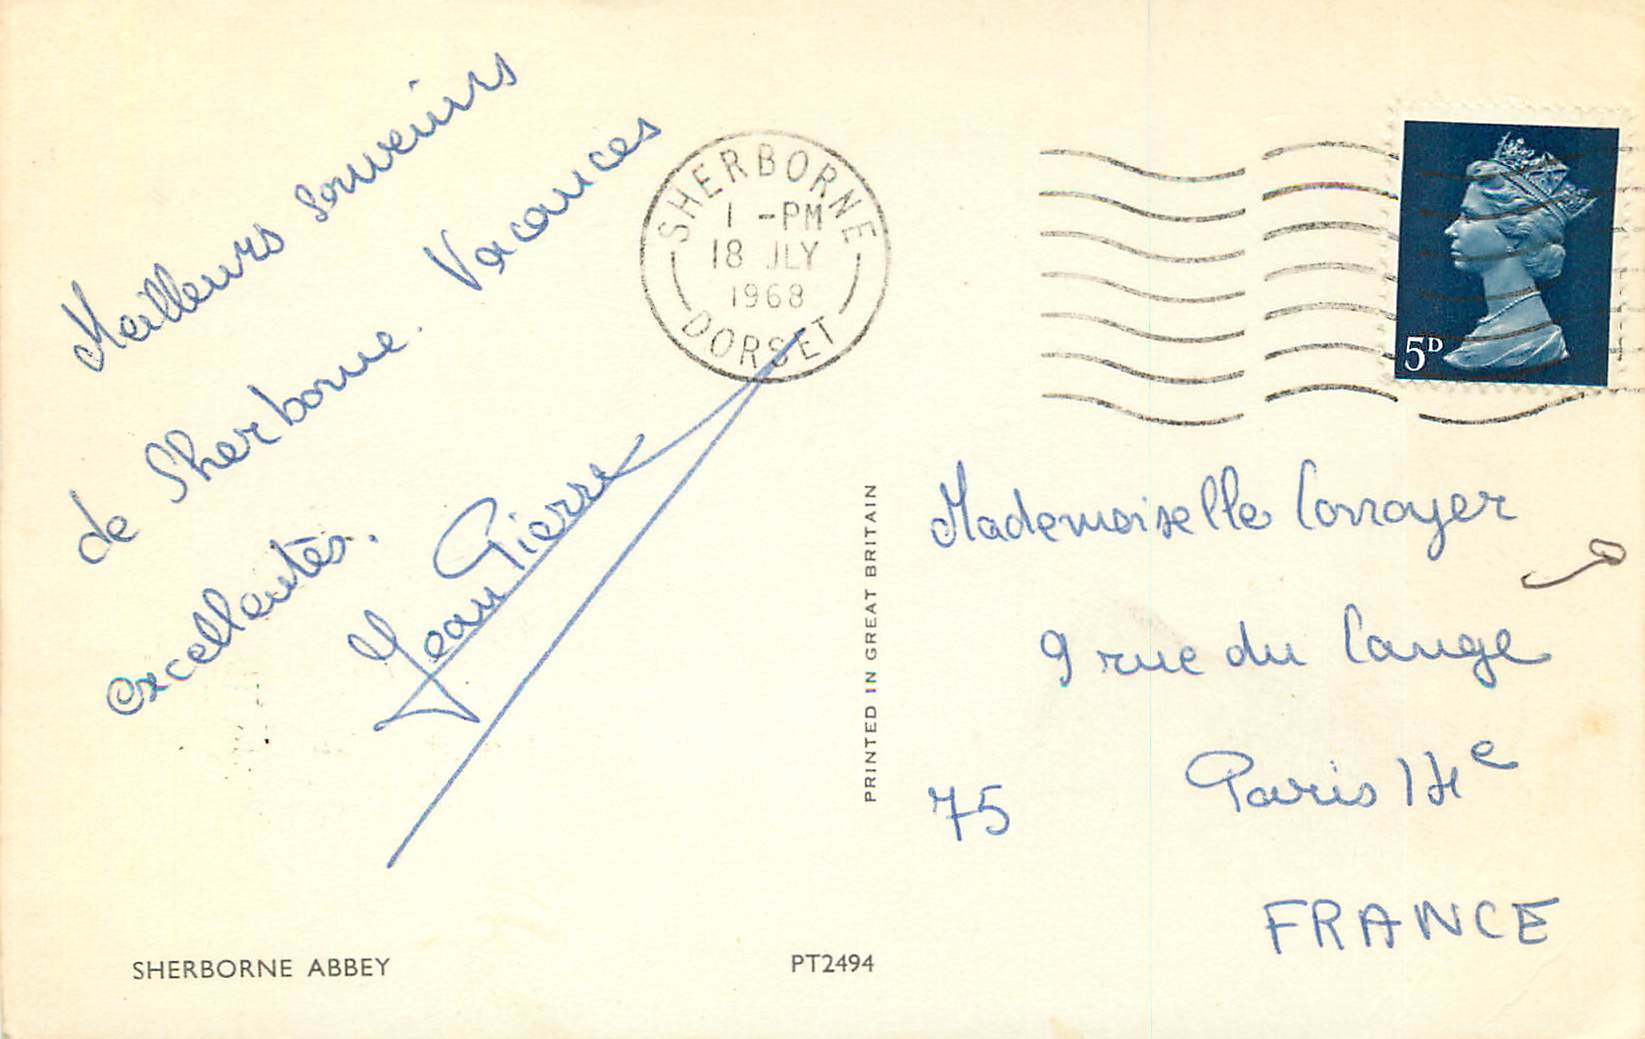 Meilleurs souvenirs
de Sherborne. Vacances
excellentes.
Jean Pierre
SHERBORNE
1 -PM
18 JLY
1968
DORSET
5D
PRINTED IN GREAT BRITAIN
Mademoiselle Corroyer
9 rue du Cange
Paris 14e
75
FRANCE
SHERBORNE ABBEY
PT2494